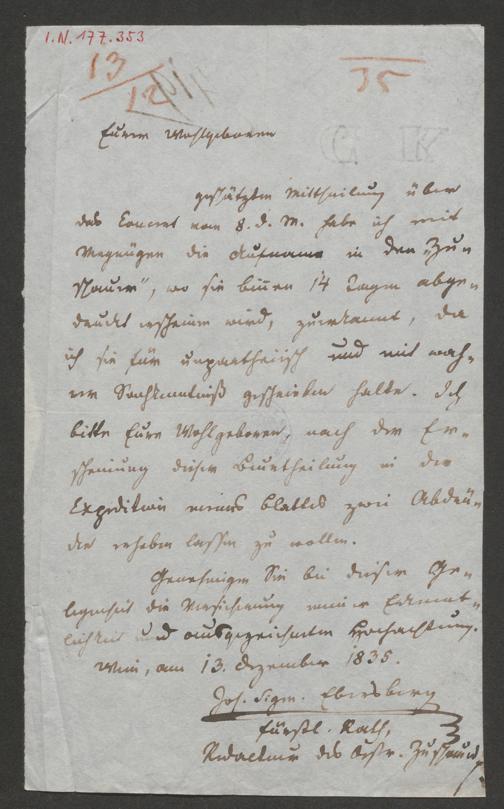 I.N. 177.353
13
12
35
G K
Eurer Wohlgeboren
geschätzten Mittheilung über
das Concert vom 8. d. M. habe ich mit
Vergnügen die Aufnahme in den „Zu-
schauer", wo sie binnen 14 Tagen abge-
druckt erscheinen wird, zuerkannt, da
ich sie für unpartheiisch und mit wah-
rer Sachkenntniß geschrieben halte. Ich
bitte Eure Wohlgeboren, nach der Er-
scheinung dieser Beurtheilung in der
Expedition meines Blattes zwei Abdrü-
cke erheben lassen zu wollen.
Genehmigen Sie bei dieser Ge-
legenheit die Versicherung meiner
und ausgezeichneten Hochachtung.
Wien, am 13. Dezember 1835.
Joh. Sigm. Ebersberg
fürstl. Rath,
Redacteur des Oestr. Zuschauers